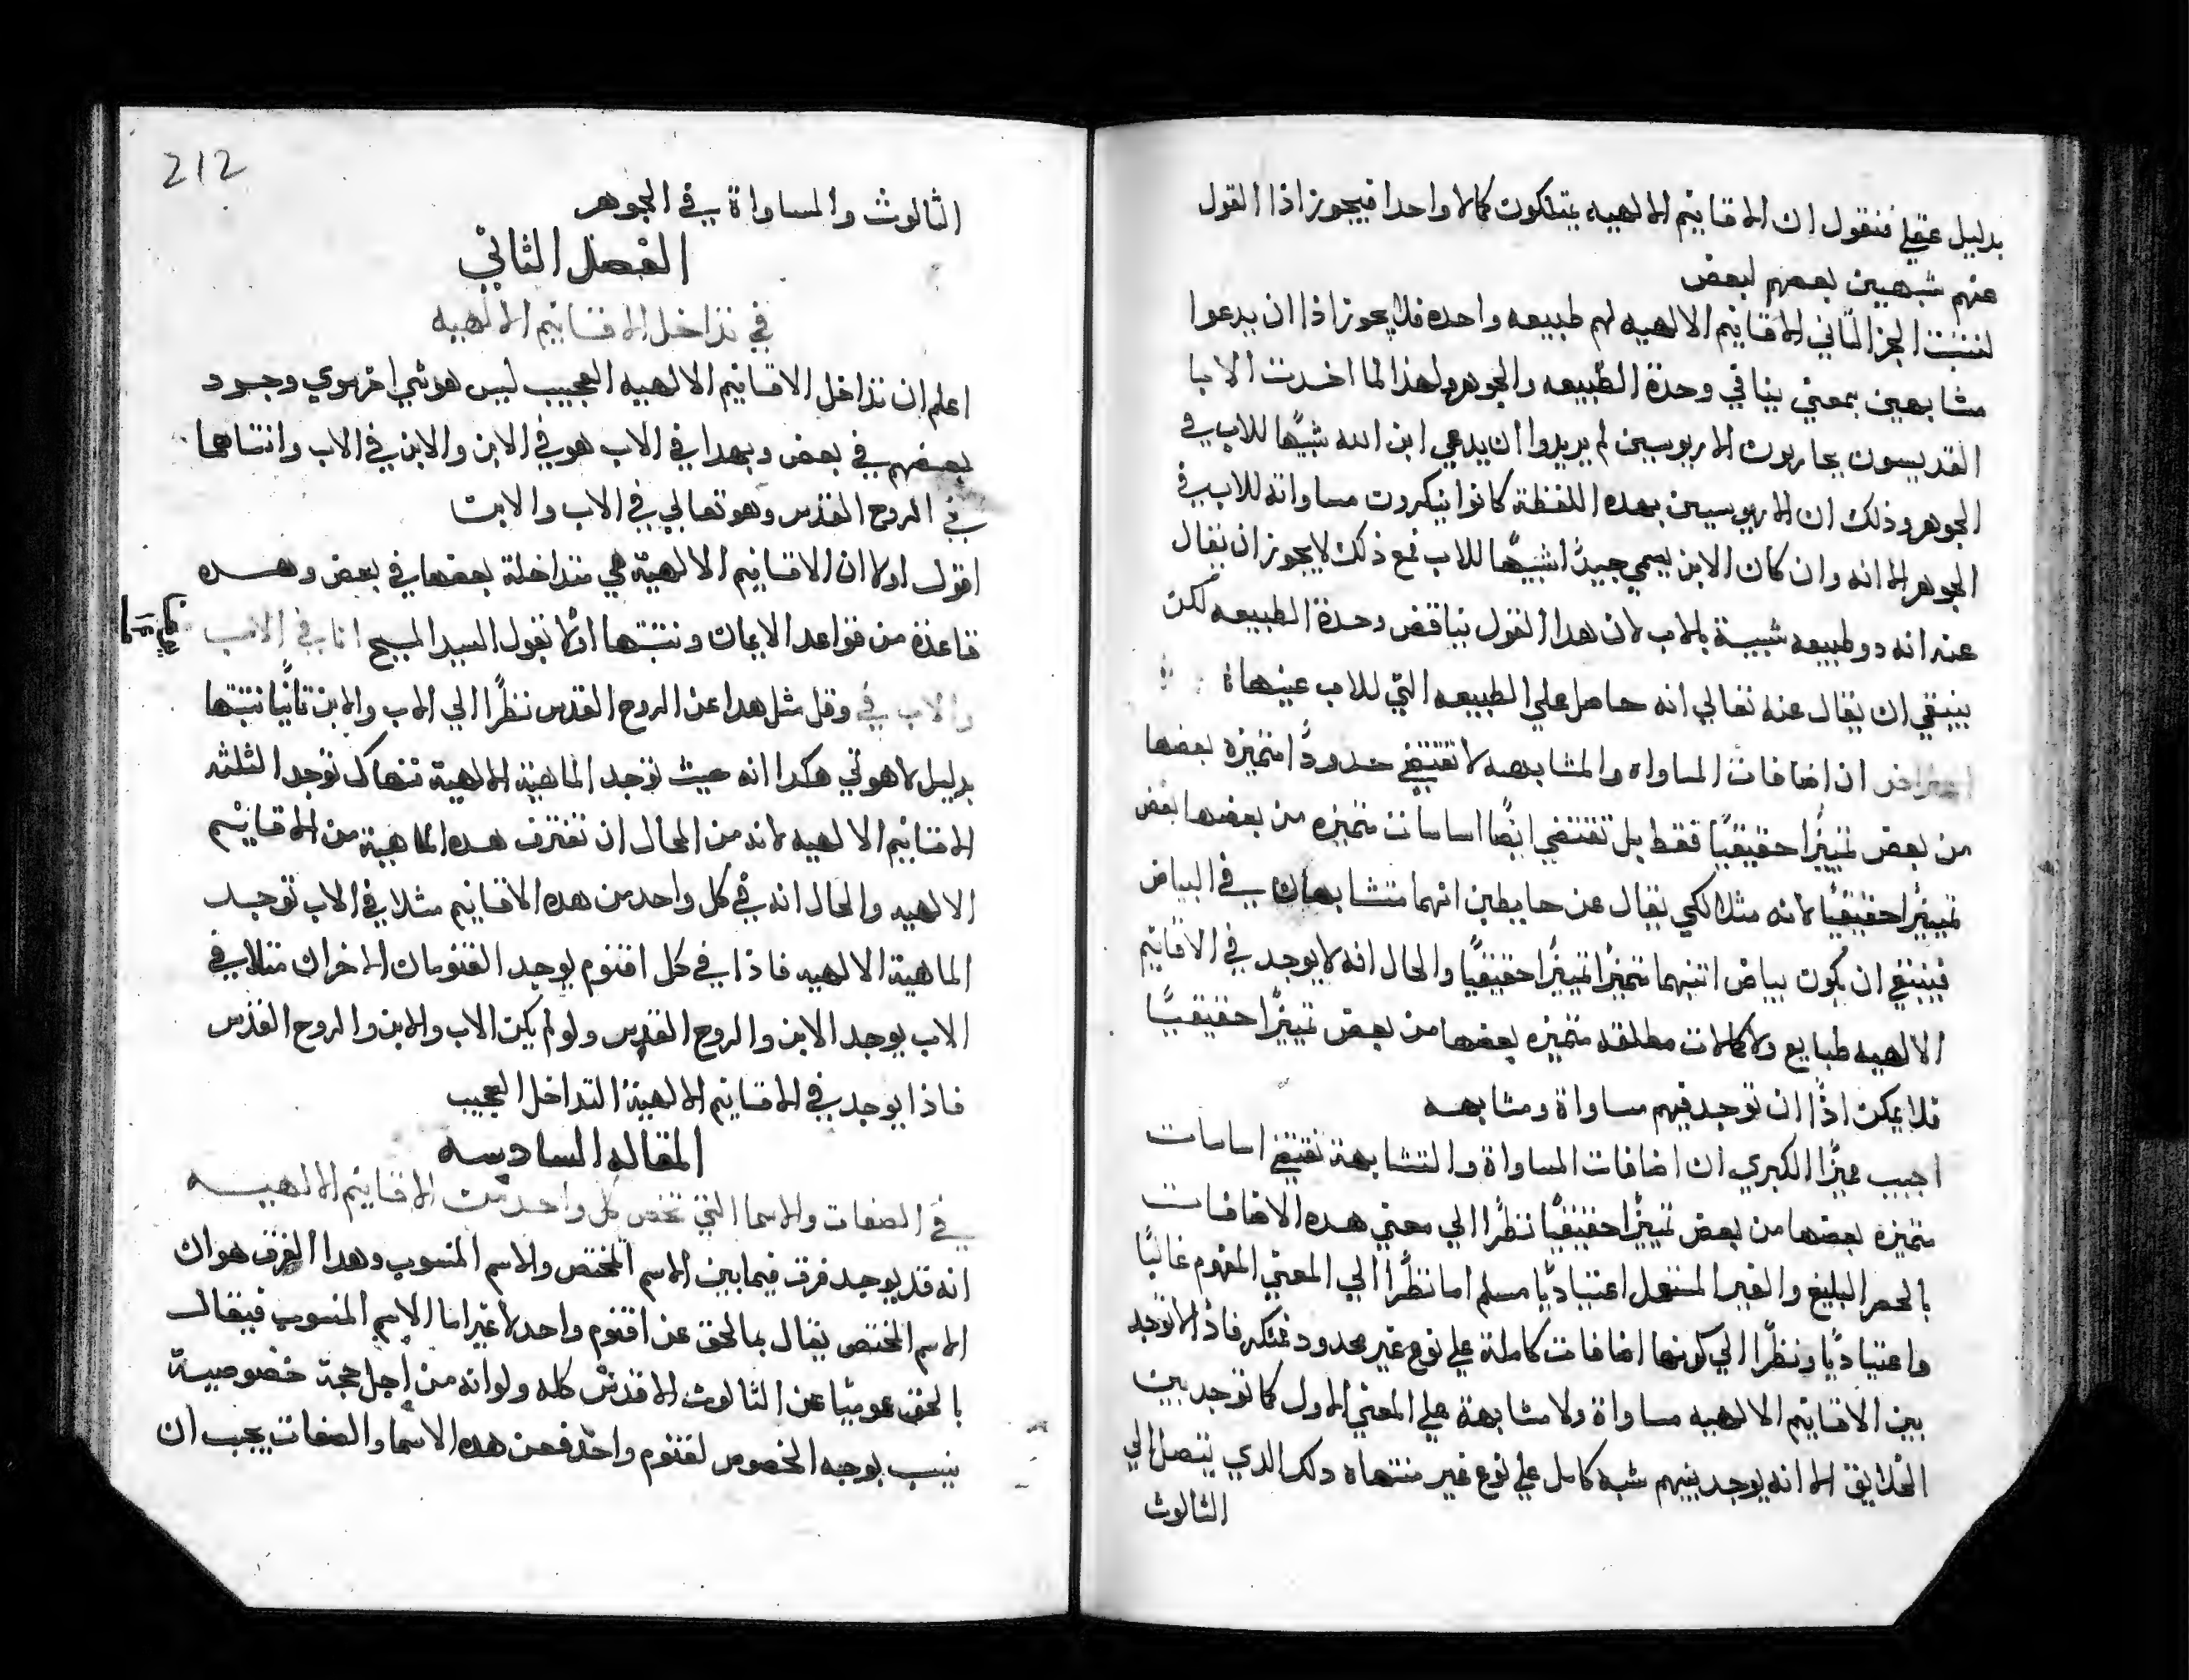 بدليل عقلي فنقول ان الاقانيم الالهيه يمتلكون كمالا واحدا فيجوز اذا القول
عنهم شبهين بعضهم لبعض
لنثبت الجز الثاني الاقانيم الالهيه لهم طبيعه واحده فلا يجوز اذا ان يدعوا
مشابهين بمعني ينافي وحدة الطبيعه والجوهر ولهذا لما اخدت الابا
القديسون يحاربون الاريوسين لم يريدوا ان يدعي ابن الله شبيها للاب في
الجوهر وذلك ان الاريوسيين بهده اللفظة كانوا ينكرون مساواته للاب في
الجوهر الا انه وان كان الابن يسمي جيدا شبيها للاب فمع ذلك لا يجوز ان يقال
عنه انه دو طبيعه شبيهة بالاب لان هدا القول يناقض وحدة الطبيعه لكن
ينبغي ان يقال عنه تعالي انه حاصل علي الطبيعه التي للاب عينها
اعتراض ان اضافات المساواه والمشابهه لا تقتضي حدودا متميزه بعضها
من بعض تمييزا حقيقيا فقط بل تقتضي ايضا اساسات متميزه من بعضها بعض
تمييزا حقيقيا لانه مثلا لكي يقال عن حايطين انهما متشابهان في البياض
فينبغي ان يكون بياض اتنيهما متميزا تمييزا حقيقيا والحال انه لا يوجد في الاقانيم
الالهيه طبايع ولا كمالات مطلقه متميزه بعضها من بعض تمييزا حقيقيا
فلا يمكن اذا ان توجد فيهم مساواة ومشابهه
اجيب مميزا الكبري ان اضافات المساواة والتشابهة تقتضي اساسات
متميزه بعضها من بعض تمييزا حقيقيا نظرا الي معني هده الاضافات
بالحصر البليغ والغير المستعمل اعتياديا مسلم اما نظرا الي المعني المفهوم غالبا
واعتياديا ونظرا الي كونها اضافات كاملة علي نوع غير محدود فمنكر فاذا لا توجد
بين الاقانيم الالهيه مساواة ولا مشابهة علي المعني الاول كما توجد بين
الخلايق الا انه يوجد بينهم شبه كامل علي نوع غير متناه دلك الدي يتصل الي
الثالوث
212
الثالوث والمساواة في الجوهر
الفصل الثاني
في تداخل الاقانيم الالهيه
اعلم ان تداخل الاقانيم الالهيه العجيب ليس هو شي اخر سوي وجود
بعضهم في بعض وبهدا في الاب هو في الابن والابن في الاب واتناهما
في الروح القدس وهو تعالي في الاب والابن
اقول اولا ان الاقانيم الالهية هي متداخلة بعضها في بعض وهده
قاعدة من قواعد الايمان ونتبتها اولا بقول السيد المسيح انا في الاب
والاب في وقل مثل هدا عن الروح القدس نظرا الي الاب والابن تانيا نتبتها
بدليل لاهوتي هكدا انه حيث توجد الماهية الالهية فهناك توجد الثلثه
الاقانيم الالهيه لانه من المحال ان تفترق هده الماهية من الاقانيم
الالهيه والحال انه في كل واحد من هده الاقانيم مثلا في الاب توجد
الماهية الالهيه فاذا في كل اقنوم يوجد القنومان الاخران مثلا في
الاب يوجد الابن والروح القدس ولو لم يكن الاب والابن والروح القدس
فاذا يوجد في الاقانيم الالهية التداخل العجيب
المقاله السادسه
في الصفات والاسما التي تخص كل واحد من الاقانيم الالهيه
انه قد يوجد فرق فيما بين الاسم المختص والاسم المنسوب وهدا الفرق هو ان
الاسم المختص يقال بالحق عن اقنوم واحد لا غير اما الاسم المنسوب فيقال
بالحق عموميا عن الثالوث الاقدس كله ولو انه من اجل حجة خصوصية
ينسب بوجه الخصوص لقنوم واحد فعن هده الاسما والصفات يجب ان